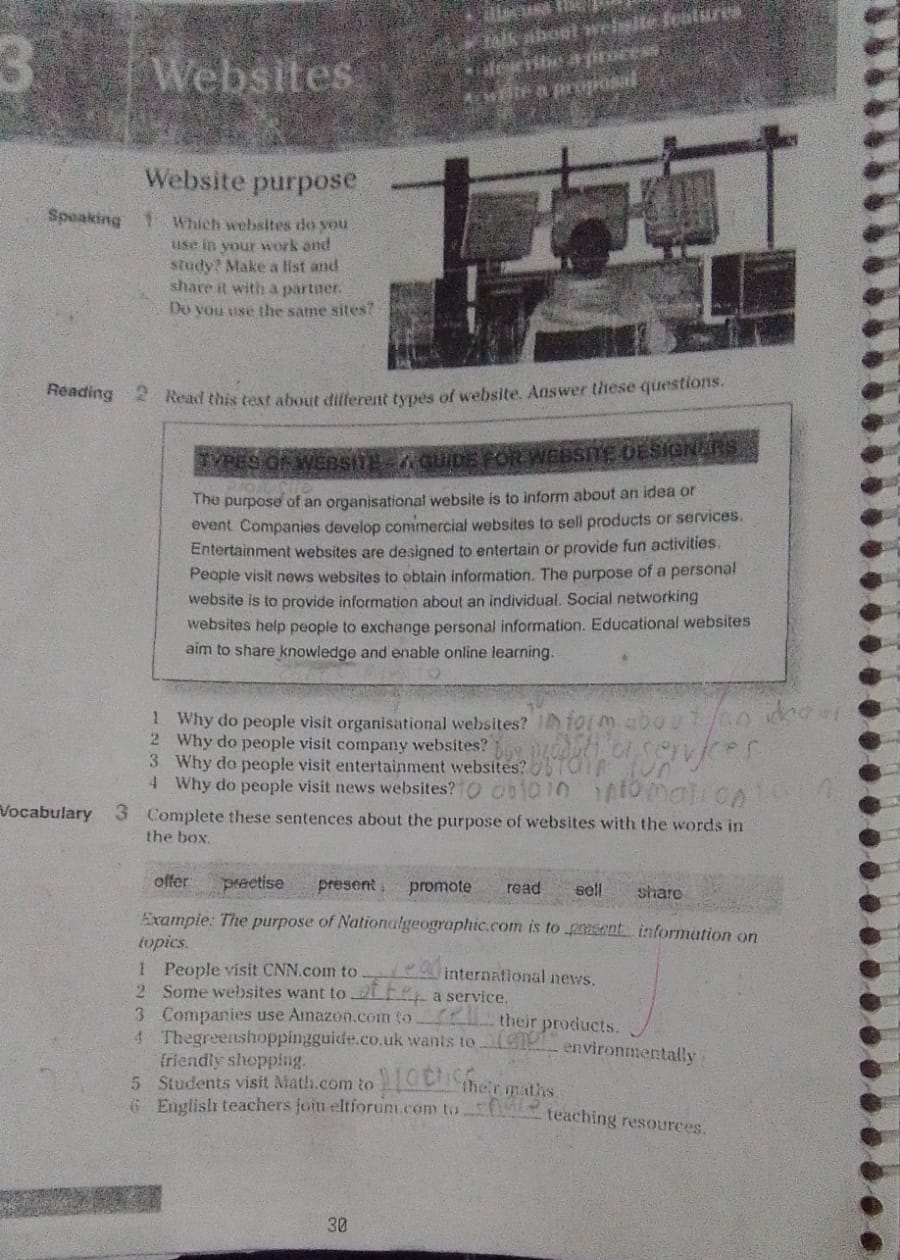 3
Websites
talk about website features
• describe a process
• write a proposal
Website purpose
Speaking 1 Which websites do you
use in your work and
study? Make a list and
share it with a partner.
Do you use the same sites?
Reading 2 Read this text about different types of website. Answer these questions.
TYPES OF WEBSITE – A GUIDE FOR WEBSITE DESIGNERS
The purpose of an organisational website is to inform about an idea or
event. Companies develop commercial websites to sell products or services.
Entertainment websites are designed to entertain or provide fun activities.
People visit news websites to obtain information. The purpose of a personal
website is to provide information about an individual. Social networking
websites help people to exchange personal information. Educational websites
aim to share knowledge and enable online learning.
1 Why do people visit organisational websites? inform about an idea
2 Why do people visit company websites? or services
3 Why do people visit entertainment websites? obtain fun
4 Why do people visit news websites? to obtain infomation
Vocabulary 3 Complete these sentences about the purpose of websites with the words in
the box.
offer practise present promote read sell share
Example: The purpose of Nationalgeographic.com is to present information on
topics.
1 People visit CNN.com to read international news.
2 Some websites want to offer a service.
3 Companies use Amazon.com to sell their products.
4 Thegreenshoppingguide.co.uk wants to environmentally
friendly shopping.
5 Students visit Math.com to their maths.
6 English teachers join eltforum.com to share teaching resources.
30